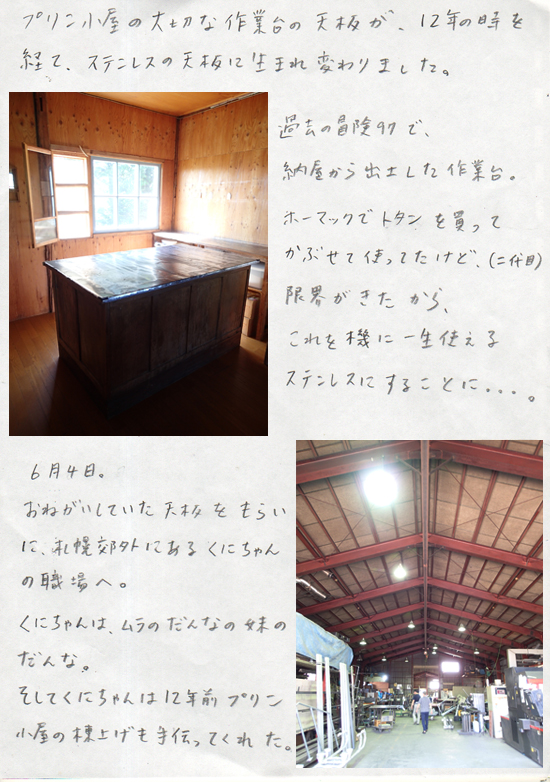 プリン小屋の大切な作業台の天板が、12年の時を
経て、ステンレスの天板に生まれ変わりました。
過去の冒険97で、
納屋から出土した作業台。
ホーマックでトタンを買って
かぶせて使ってたけど、(二代目)
限界がきたから、
これを機に一生使える
ステンレスにすることに・・・・。
6月4日。
おねがいしていた天板をもらい
に、札幌郊外にあるくにちゃん
の職場へ。
くにちゃんは、ムラのだんなの妹の
だんな。
そしてくにちゃんは12年前プリン
小屋の棟上げも手伝ってくれた。